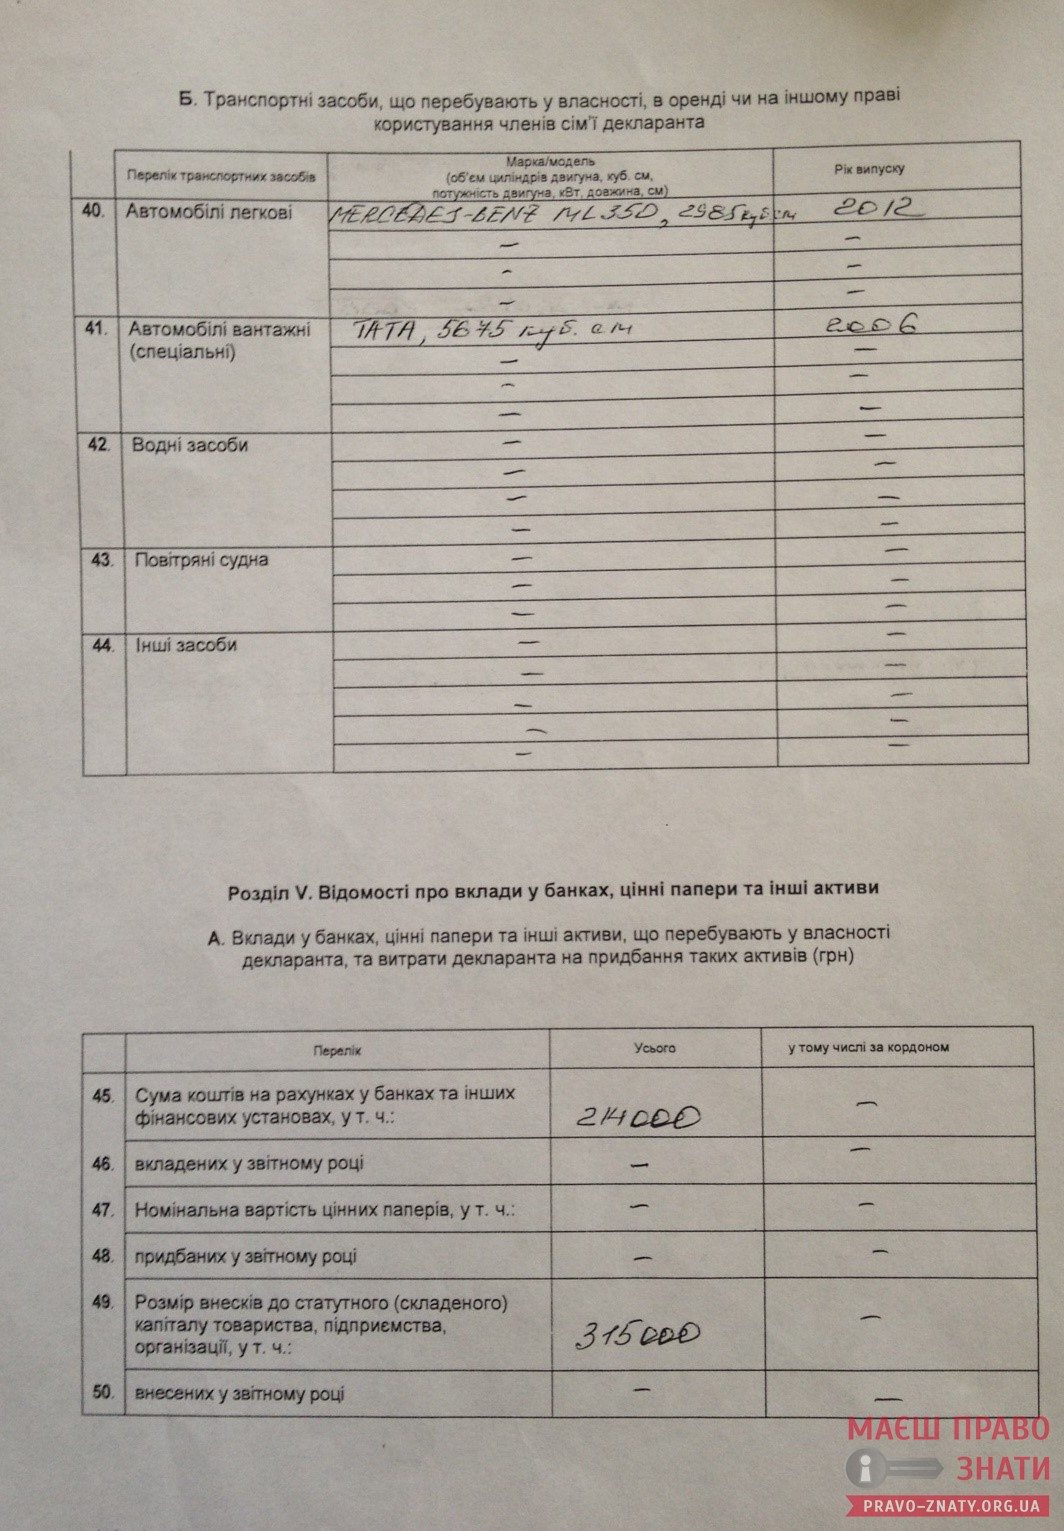 Б. Транспортні засоби, що перебувають у власності, в оренді чи на іншому праві
користування членів сім'ї декларанта
Перелік транспортних засобів
Марка/модель
(об'єм циліндрів двигуна, куб. см,
потужність двигуна, кВт, довжина, см)
Рік випуску
40. Автомобілі легкові MERCEDES-BENZ ML 350, 2985 куб см 2012
— —
— —
— —
41. Автомобілі вантажні TATA, 5675 куб. см 2006
(спеціальні)
— —
— —
— —
42. Водні засоби — —
— —
— —
— —
43. Повітряні судна — —
— —
— —
44. Інші засоби — —
— —
— —
— —
— —
Розділ V. Відомості про вклади у банках, цінні папери та інші активи
А. Вклади у банках, цінні папери та інші активи, що перебувають у власності
декларанта, та витрати декларанта на придбання таких активів (грн)
Перелік Усього у тому числі за кордоном
45. Сума коштів на рахунках у банках та інших
фінансових установах, у т. ч.: 214000 —
46. вкладених у звітному році — —
47. Номінальна вартість цінних паперів, у т. ч.: — —
48. придбаних у звітному році — —
49. Розмір внесків до статутного (складеного)
капіталу товариства, підприємства,
організації, у т. ч.: 315000 —
50. внесених у звітному році — —
МАЄШ ПРАВО
ЗНАТИ
PRAVO-ZNATY.ORG.UA